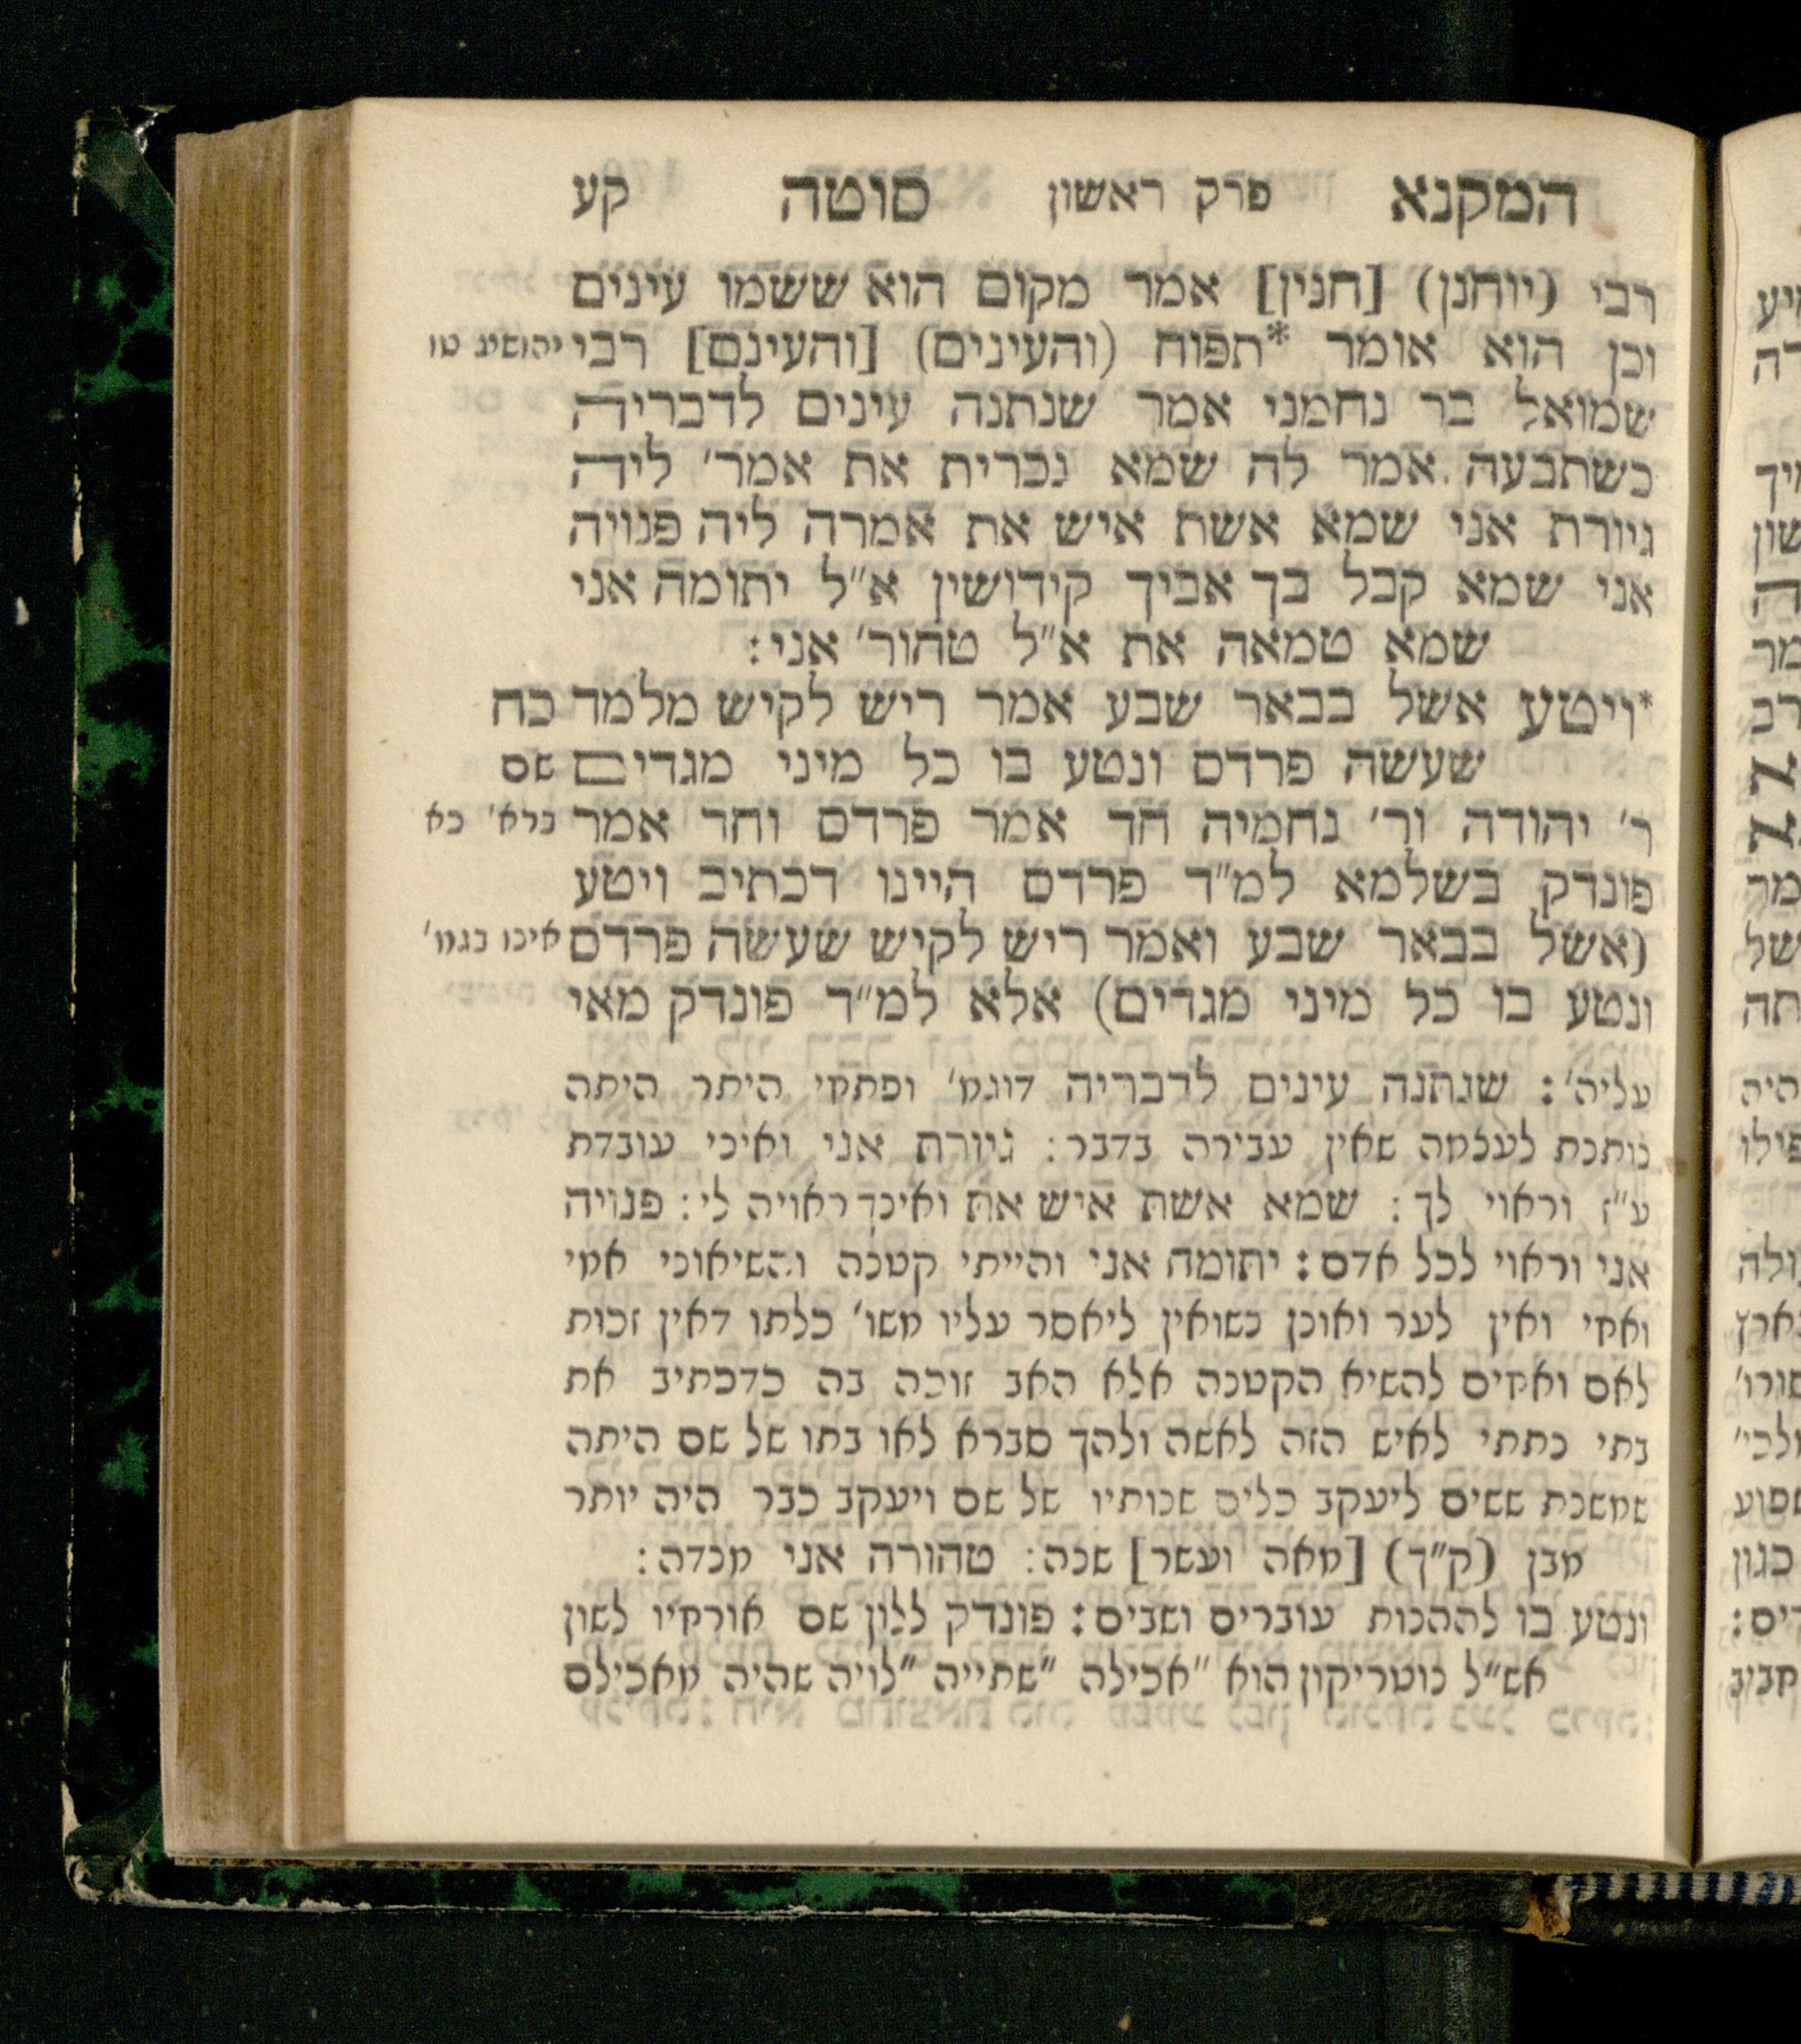 המקנא פרק ראשון סוטה קע
רבי (יוחנן) [חנין] אמר מקום הוא ששמו עינים
וכן הוא אומר *תפוח (והעינים) [והעינם] רבי יהושע טו
שמואל בר נחמני אמר שנתנה עינים לדבריה
כשתבעה אמר לה שמא נכרית את אמר' ליה
גיורת אני שמא אשת איש את אמרה ליה פנויה
אני שמא קבל בך אביך קידושין א"ל יתומה אני
שמא טמאה את א"ל טהור' אני:
*ויטע אשל בבאר שבע אמר ריש לקיש מלמד כח
שעשה פרדם ונטע בו כל מיני מגדים שם
ר' יהודה ור' נחמיה חד אמר פרדם וחד אמר ברא' כא
פונדק בשלמא למ"ד פרדם היינו דכתיב ויטע
(אשל בבאר שבע ואמר ריש לקיש שעשה פרדם אינו בגמ'
ונטע בו כל מיני מגדים) אלא למ"ד פונדק מאי
עליה': שנתנה עינים לדבריה דוגמ' ופתחי היתר היתה
נותנת לעצמה שאין עבירה בדבר: גיורת אני ואיני עובדת
ע"ז וראוי לך: שמא אשת איש את ואינך ראויה לי: פנויה
אני וראוי לכל אדם: יתומה אני והייתי קטנה והשיאוני אמי
ואחי ואין לער ואונן נשואין ליאסר עליו משו' כלתו דאין זכות
לאם ואחים להשיא הקטנה אלא האב זוכה בה כדכתיב את
בתי נתתי לאיש הזה לאשה ולהך סברא לאו בתו של שם היתה
שמשנת ששים ליעקב כלים שנותיו של שם ויעקב כבר היה יותר
מבן (ק"ך) [מאה ועשר] שנה: טהורה אני מנדה:
ונטע בו לההנות עוברים ושבים: פונדק ללון שם אורחיו לשון
אש"ל נוטריקון הוא "אכילה "שתייה "לויה שהיה מאכילם